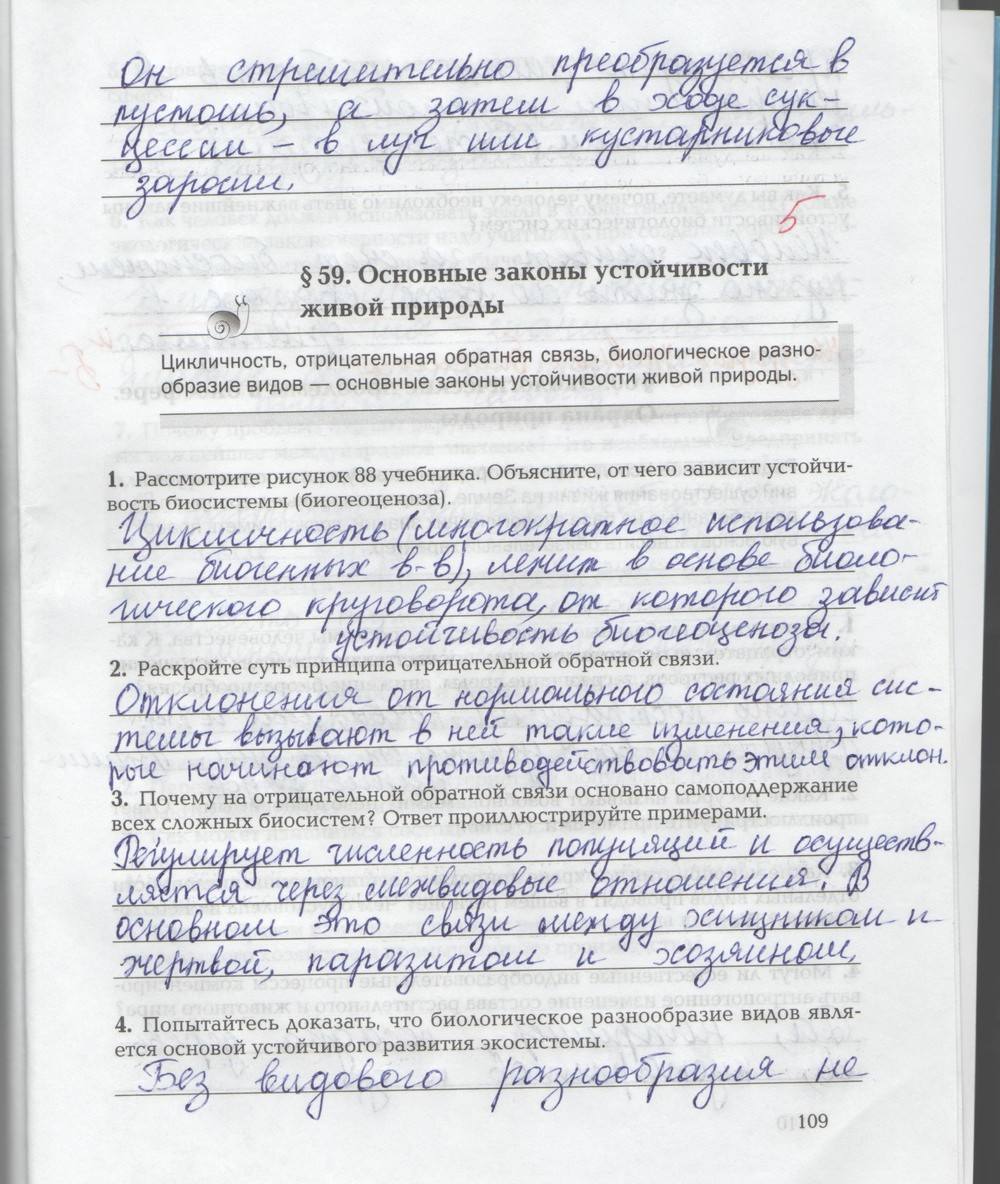 Он стремительно преобразуется в
пустошь, а затем в ходе сук-
цессии – в луг или кустарниковые
заросли.
5
§ 59. Основные законы устойчивости
живой природы
Цикличность, отрицательная обратная связь, биологическое разно-
образие видов — основные законы устойчивости живой природы.
1. Рассмотрите рисунок 88 учебника. Объясните, от чего зависит устойчи-
вость биосистемы (биогеоценоза).
Цикличность (многократное использова-
ние биогенных в-в), лежит в основе биоло-
гического круговорота, от которого зависит
устойчивость биогеоценоза.
2. Раскройте суть принципа отрицательной обратной связи.
Отклонения от нормального состояния сис-
темы вызывают в ней такие изменения, кото-
рые начинают противодействовать этим отклон.
3. Почему на отрицательной обратной связи основано самоподдержание
всех сложных биосистем? Ответ проиллюстрируйте примерами.
Регулирует численность популяций и осуществ-
ляется через межвидовые отношения. В
основном это связи между хищником и
жертвой, паразитом и хозяином,
4. Попытайтесь доказать, что биологическое разнообразие видов явля-
ется основой устойчивого развития экосистемы.
Без видового разнообразия не
109